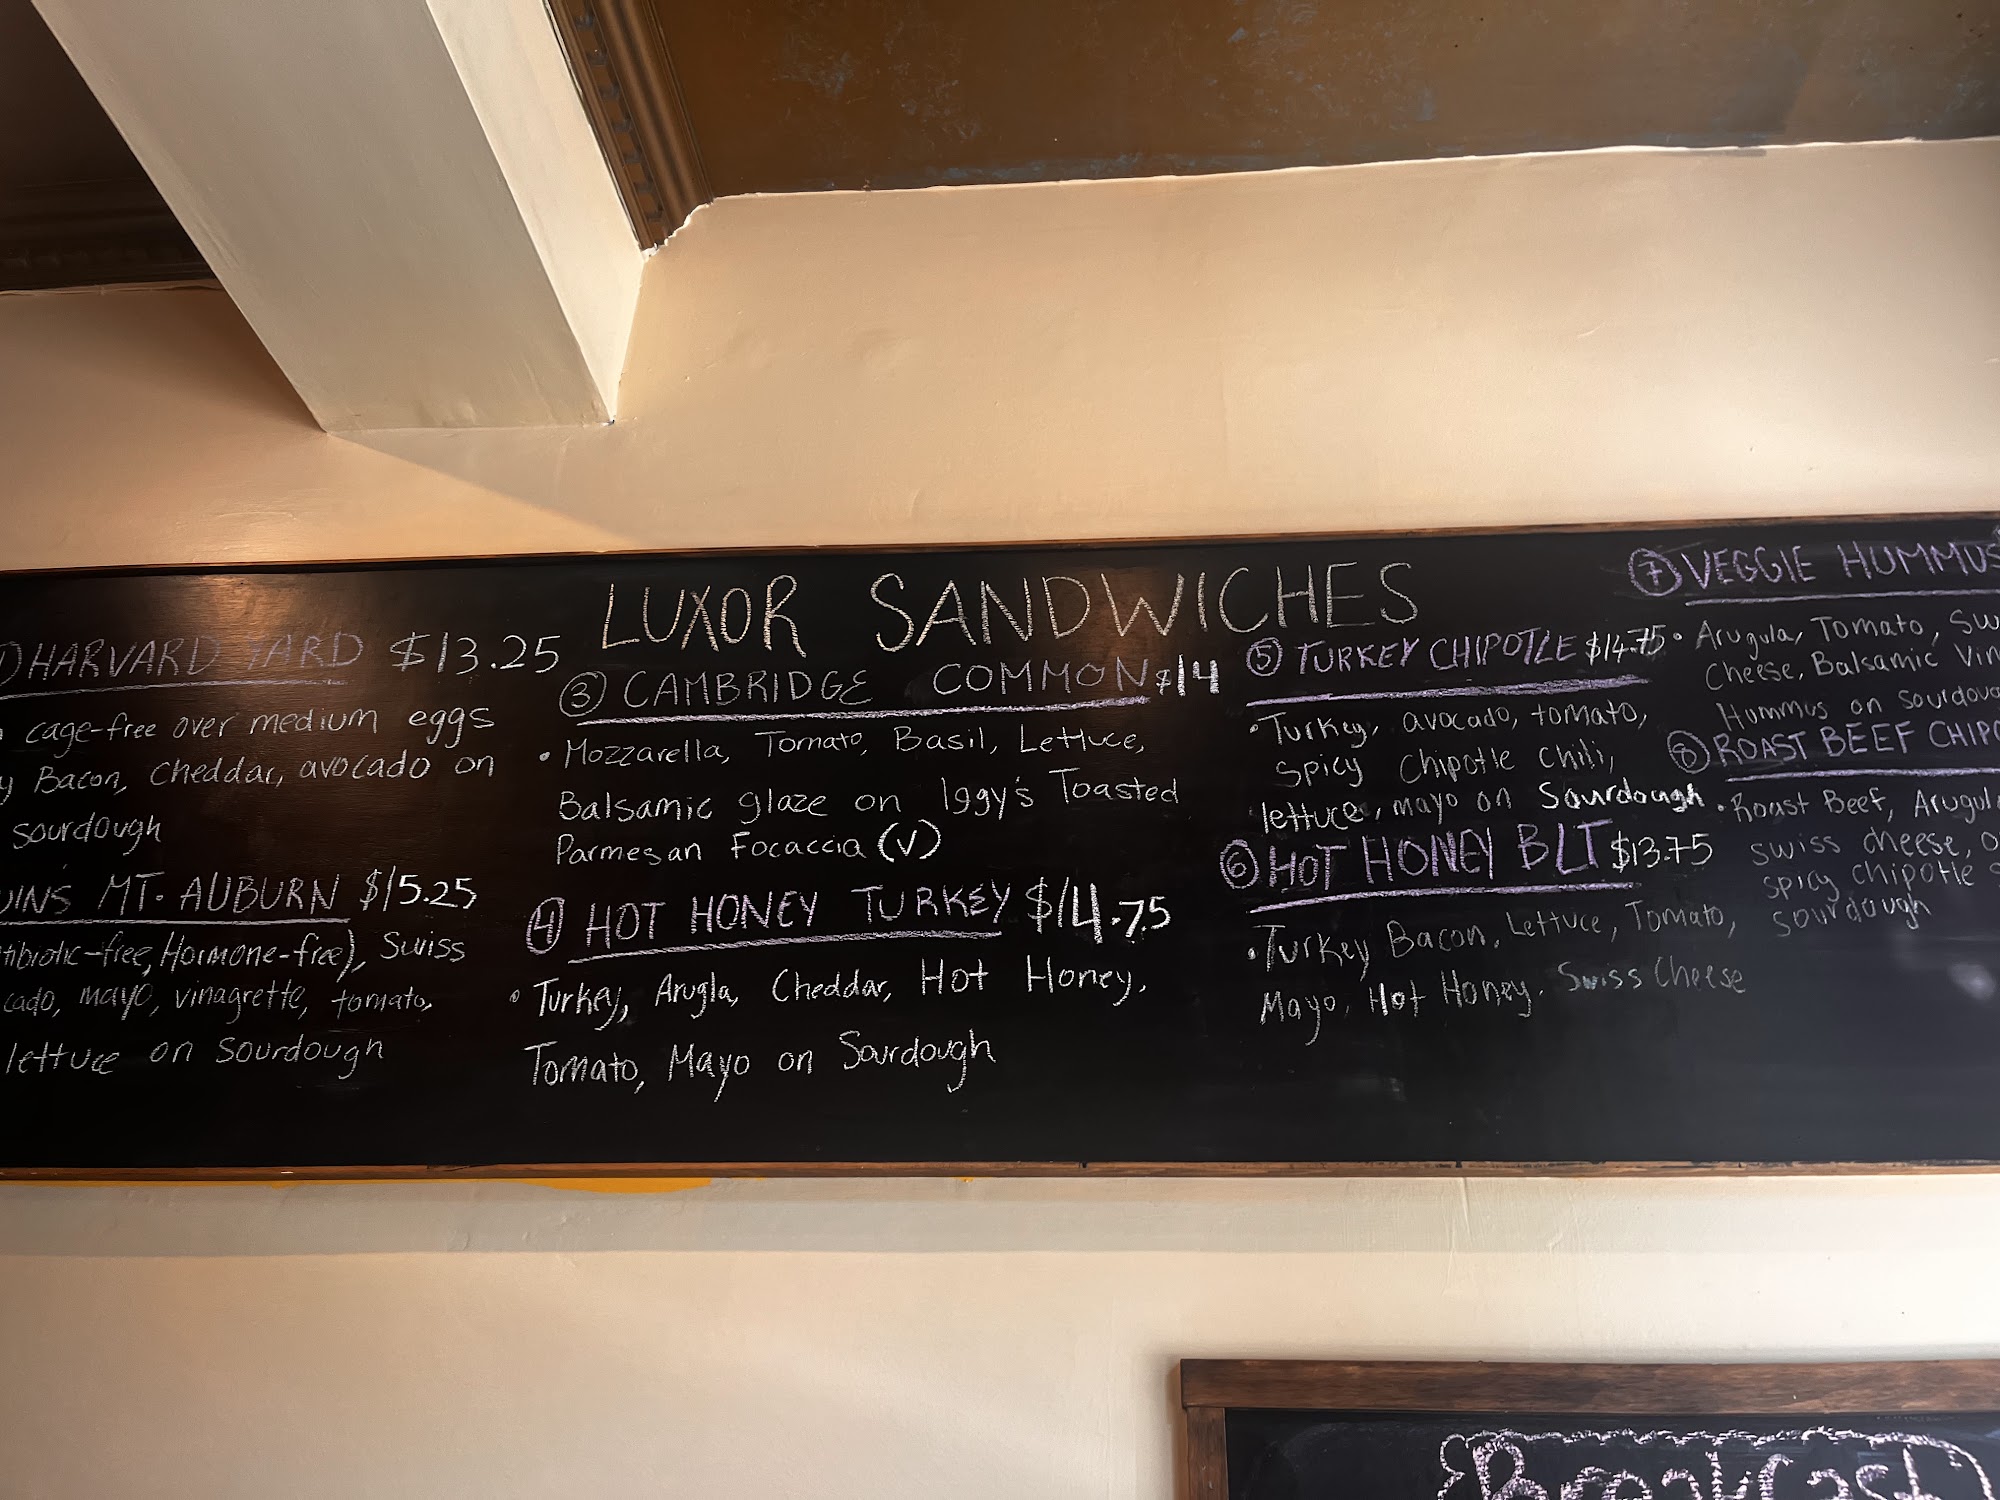 LUXOR SANDWICHES
HARVARD YARD $13.25
cage-free over medium eggs
Bacon, cheddar, avocado on
sourdough
MT. AUBURN $15.25
Hormone-free), Swiss
mayo, vinagrette, tomato,
lettuce on Sourdough
3 CAMBRIDGE COMMON $14
• Mozzarella, Tomato, Basil, Lettuce,
Balsamic glaze on Iggy's Toasted
Parmesan Focaccia (V)
4 HOT HONEY TURKEY $14.75
• Turkey, Arugla, Cheddar, Hot Honey,
Tomato, Mayo on Sourdough
5 TURKEY CHIPOTLE $14.75
• Turkey, avocado, tomato,
spicy chipotle chili,
lettuce, mayo on Sourdough
6 HOT HONEY BLT $13.75
• Turkey Bacon, Lettuce, Tomato,
Mayo, Hot Honey, Swiss Cheese
7 VEGGIE HUMMUS
• Arugula, Tomato,
Cheese, Balsamic
Hummus on
8 ROAST BEEF
• Roast Beef,
swiss cheese,
spicy chipotle
sourdough
Breakfast